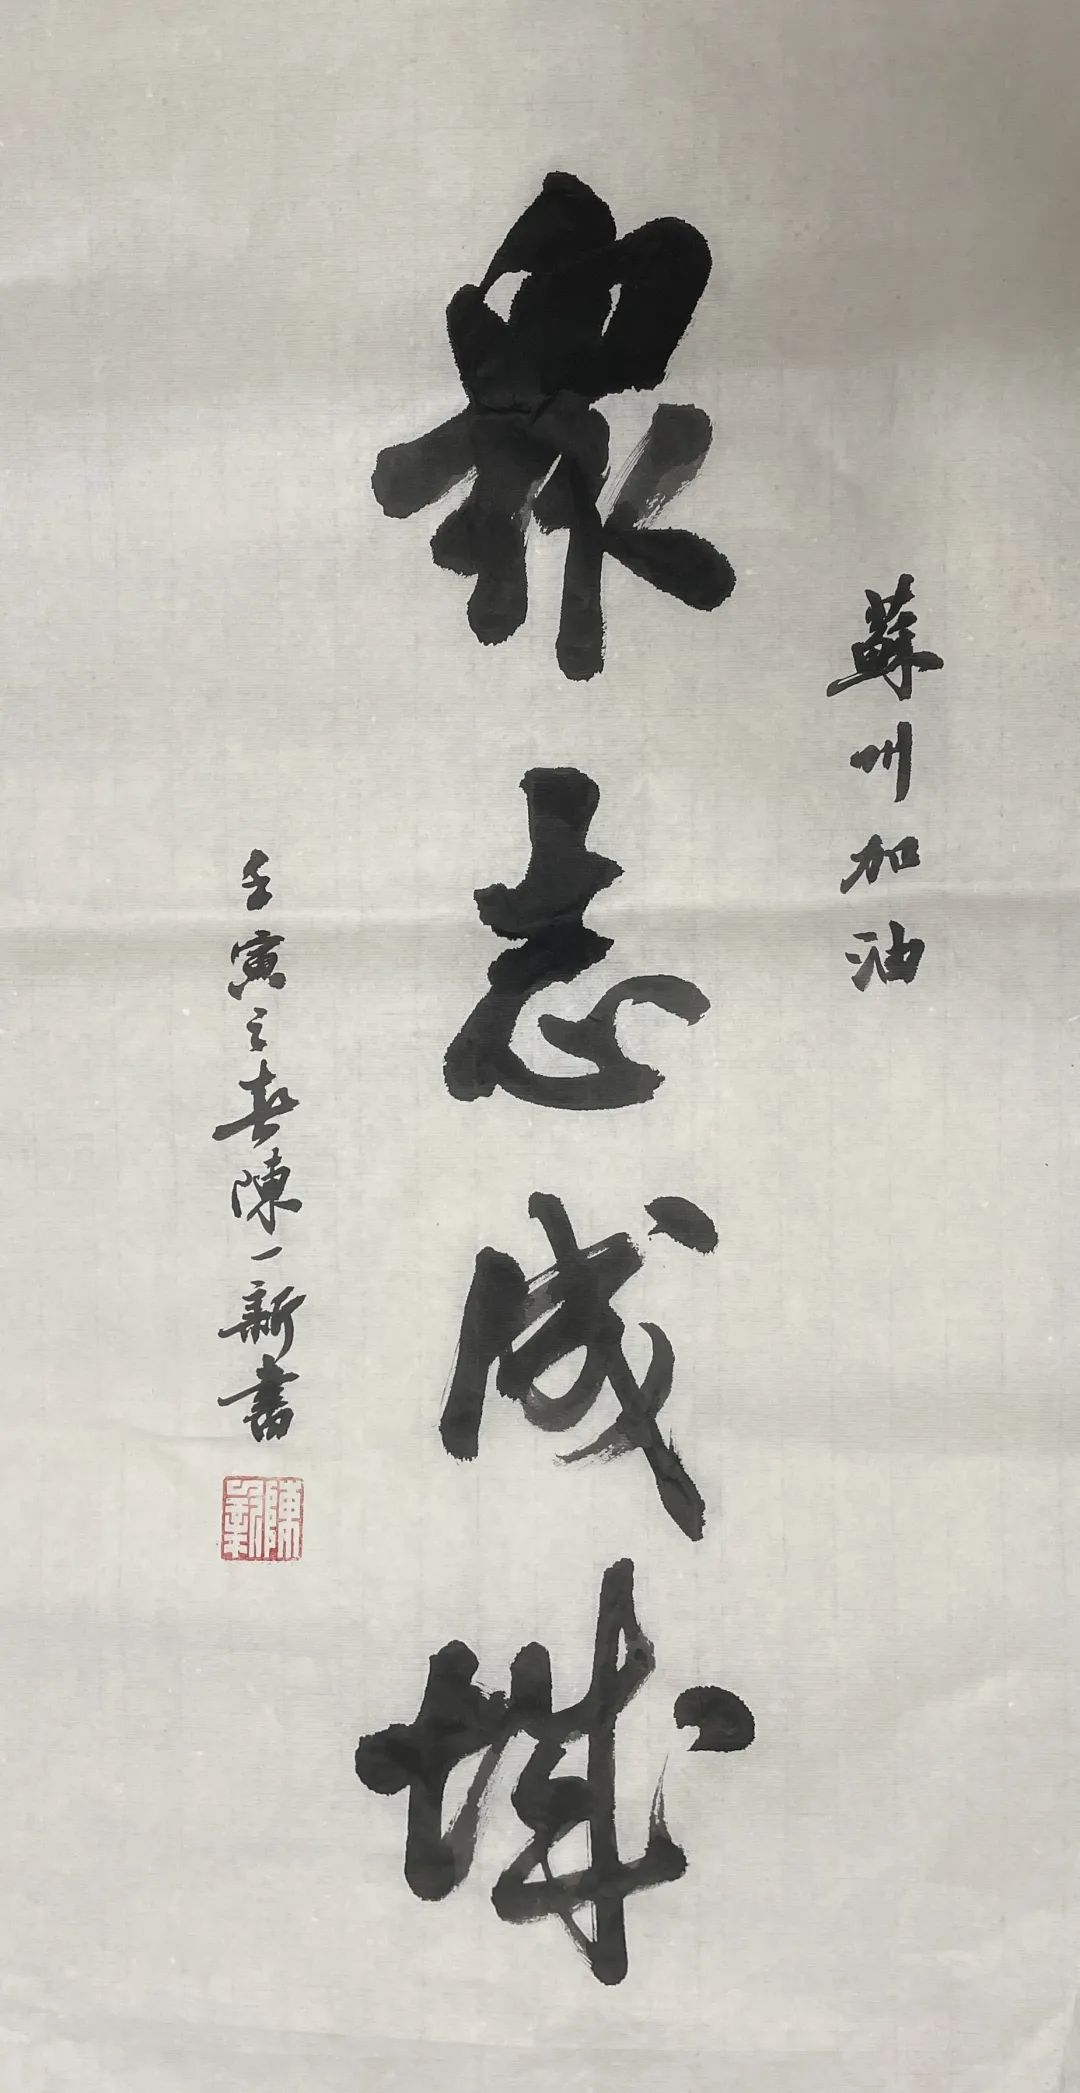 蘇州加油
衆志成城
壬寅之春陳一新書
陳一新